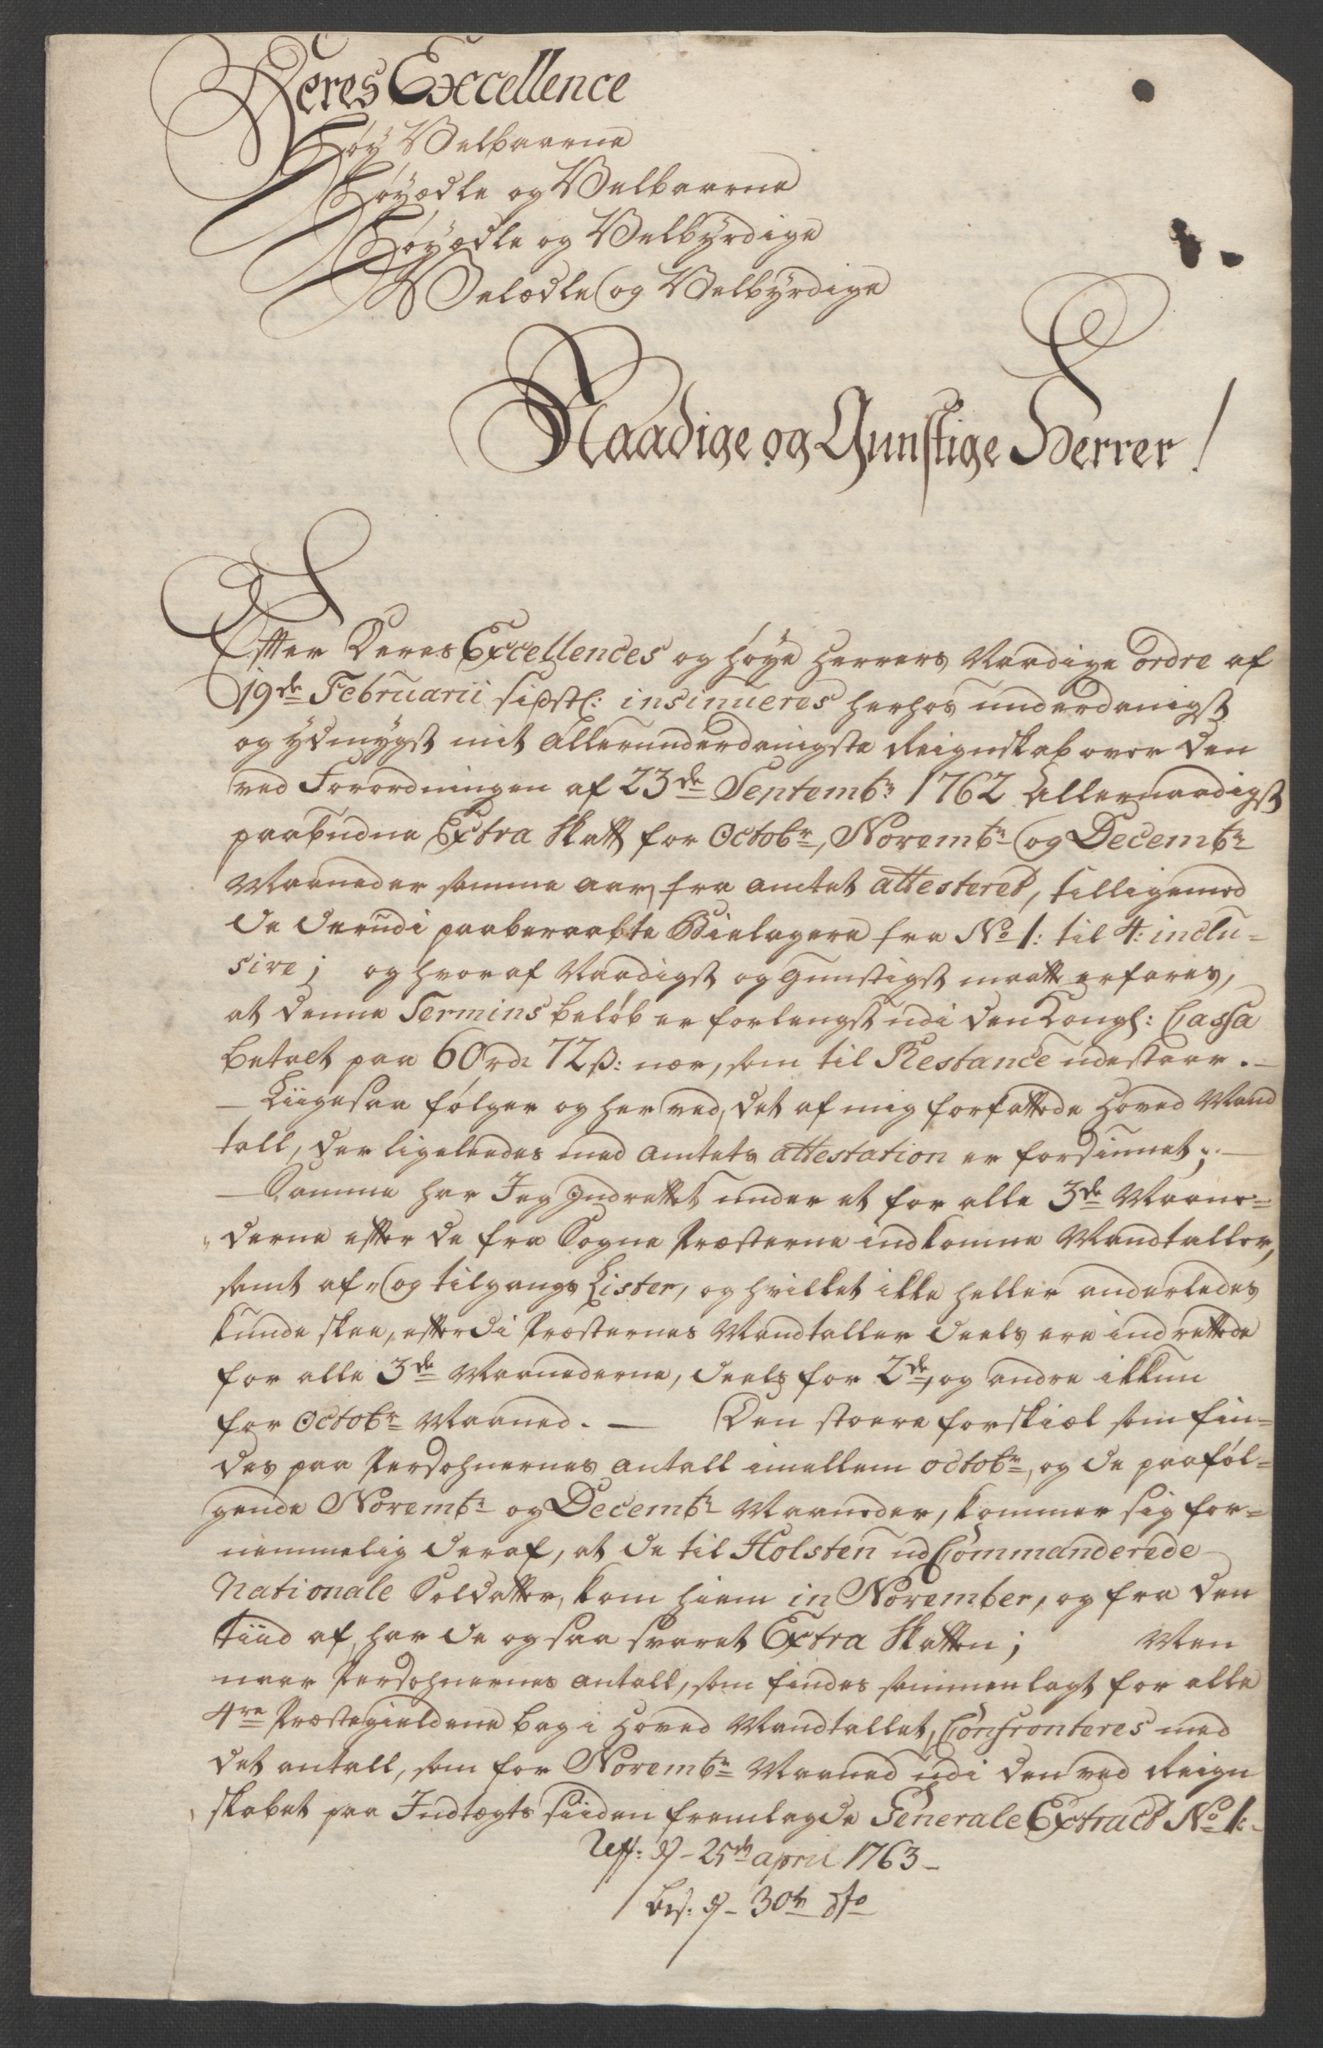 Deres Excellence
Høy Velbaarne
Høyædle og Velbaarne
Høyædle og Velbyrdige
Velædle og Velbyrdige
Naadige og Gunstige Herrer!
Efter Deres Excellences og høye Herrers Naadige ordre af
19de Februarii sidstl: insinueres herhos underdanigst
og ydmygst mit Allerunderdanigste Reignskab over den
ved Forordningen af 23de Septembr: 1762 Allernaadigst
paabudne Extra Skatt for Octobr, Novembr og Decembr
Maaneder samme aar, fra Amtet attesteret, tilligemed
de derudi paaberaabte Bielagere fra No 1: til 4: inclu-
sive; og hvoraf Naadigst og gunstigst maatte erfares,
at denne Termins beløb er forlengst udi den Kongl: Cassa
betalt paa 60 rd 72 s: nær, som til Restance udestaar. -
- Liigesaa følger og her ved, det af mig forfattede Hoved Mand
tall, der ligeledes med Amtets attestation er forsiunet; -
- Samme har Jeg Indrettet under et for alle 3de Maane-
derne efter de fra Sogne Præsterne indkomne Mandtaller,
samt af- og tilgangs Lister, og hvilket ikke heller anderledes
kunde skee, efterdi Præsternes Mandtaller deels ere indrettede
for alle 3de Maanederne, deels for 2de, og andre ikkun
for Octobr Maaned. - Den store forskiæl som fin-
des paa Persohnernes antall imellem octobr, og de paaføl-
gende Novembr og Decembr Maaneder, kommer sig for-
nemmelig deraf, at de til Holsten udCommanderede
Nationale Soldatter, kom hiem in November, og fra den
tiid af, har de ogsaa svaret Extra Skatten; Men
naar Persohnernes antall, som findes sammenlagt for alle
4re Præstegieldene bag i Hoved Mandtallet, Confronteres med
det antall, som for Novembr Maaned udi den ved Reign
skabet paa Indtægts siiden fremlagde Generale Extract No 1:
25de april 1763 -
30te dto